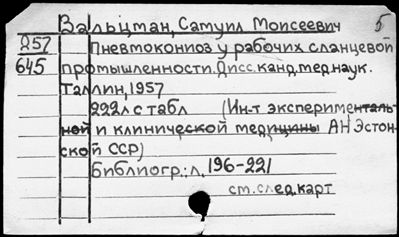 Вальцман, Самуил Моисеевич 5
257 Пневмокониоз у рабочих сланцевой
645 промышленности. Дисс. канд. мед. наук.
Таллин, 1957
222л с табл (Ин-т эксперименталь-
ной и клинической медицины АН Эстон-
ской ССР)
Библиогр.: л. 196-221
см. след. карт